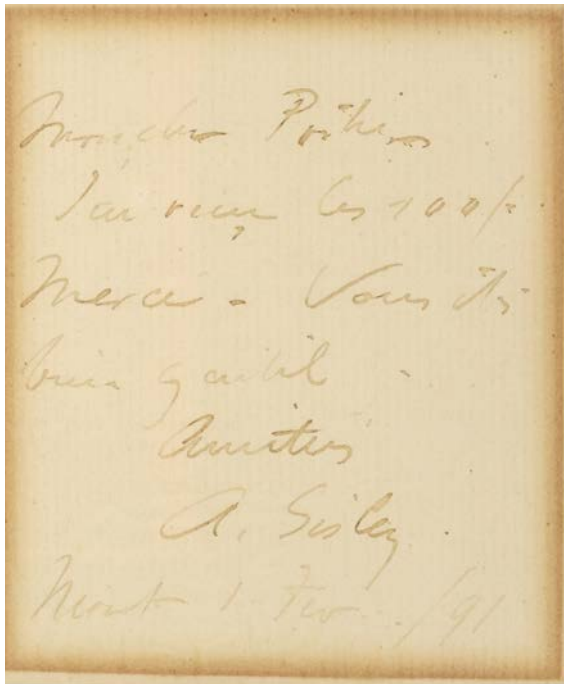 Mon cher Pothier
J'ai reçu les 100 f.
Merci - Vous êtes
bien gentil -
Amitiés
A. Sisley.
Moret 1 Fev. /91